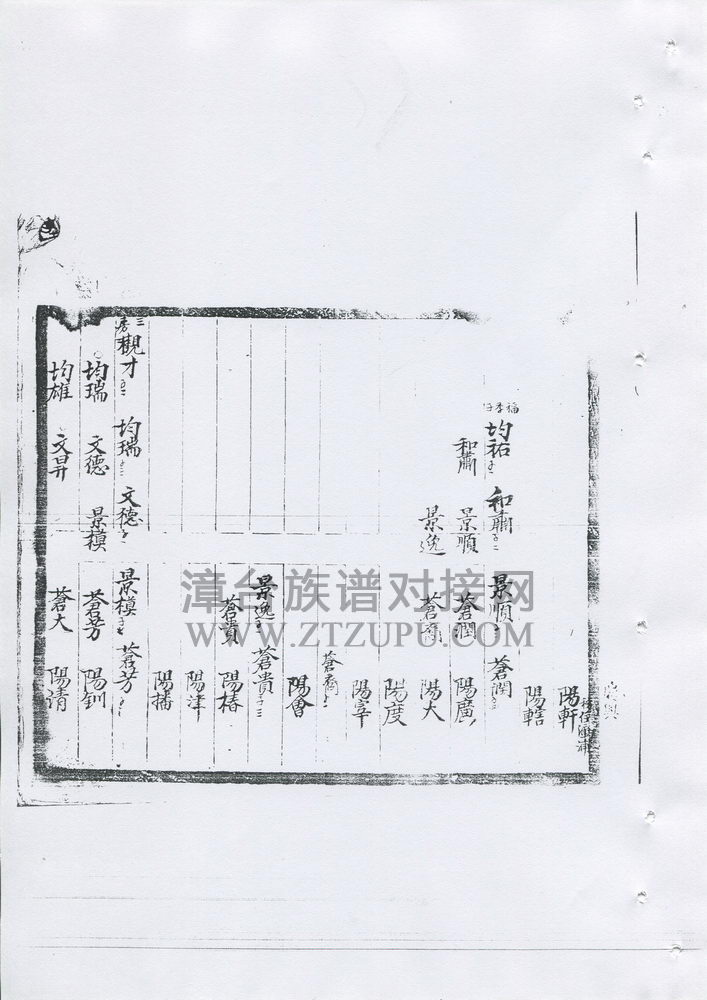 陽軒
陽轄
福
均祐 和肅 景順 蒼潤
和肅 景順 蒼潤 陽廣
景逸 蒼裔 陽大
陽度
陽宰
蒼裔
陽會
景逸 蒼貴
蒼貴 陽椿
陽津
陽播
三房 覌才 均瑞 文德 景模 蒼芳
均瑞 文德 景模 蒼芳 陽釧
均雄 文昇 蒼大 陽请
漳台族谱对接网
WWW.ZTZUPU.COM